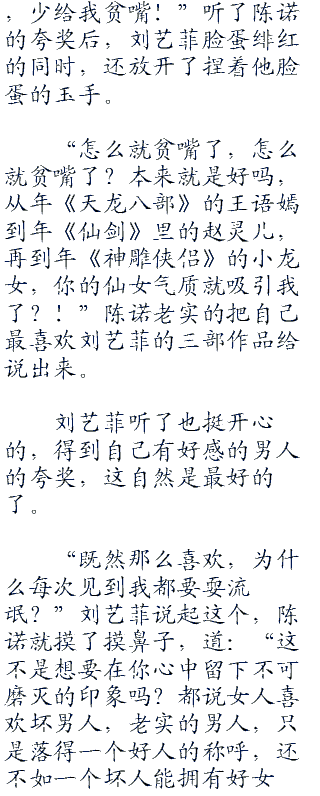 ，少给我贫嘴！”听了陈诺
的夸奖后，刘艺菲脸蛋绯红
的同时，还放开了捏着他脸
蛋的玉手。
“怎么就贫嘴了，怎么
就贫嘴了？本来就是好吗，
从年《天龙八部》的王语嫣
到年《仙剑》里的赵灵儿，
再到年《神雕侠侣》的小龙
女，你的仙女气质就吸引我
了？！”陈诺老实的把自己
最喜欢刘艺菲的三部作品给
说出来。
刘艺菲听了也挺开心
的，得到自己有好感的男人
的夸奖，这自然是最好的
了。
“既然那么喜欢，为什
么每次见到我都要耍流
氓？”刘艺菲说起这个，陈
诺就摸了摸鼻子，道：“这
不是想要在你心中留下不可
磨灭的印象吗？都说女人喜
欢坏男人，老实的男人，只
是落得一个好人的称呼，还
不如一个坏人能拥有好女